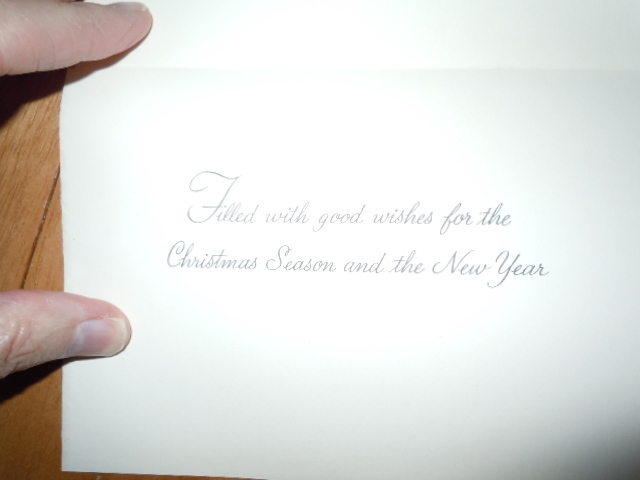 Filled with good wishes for the
Christmas Season and the New Year